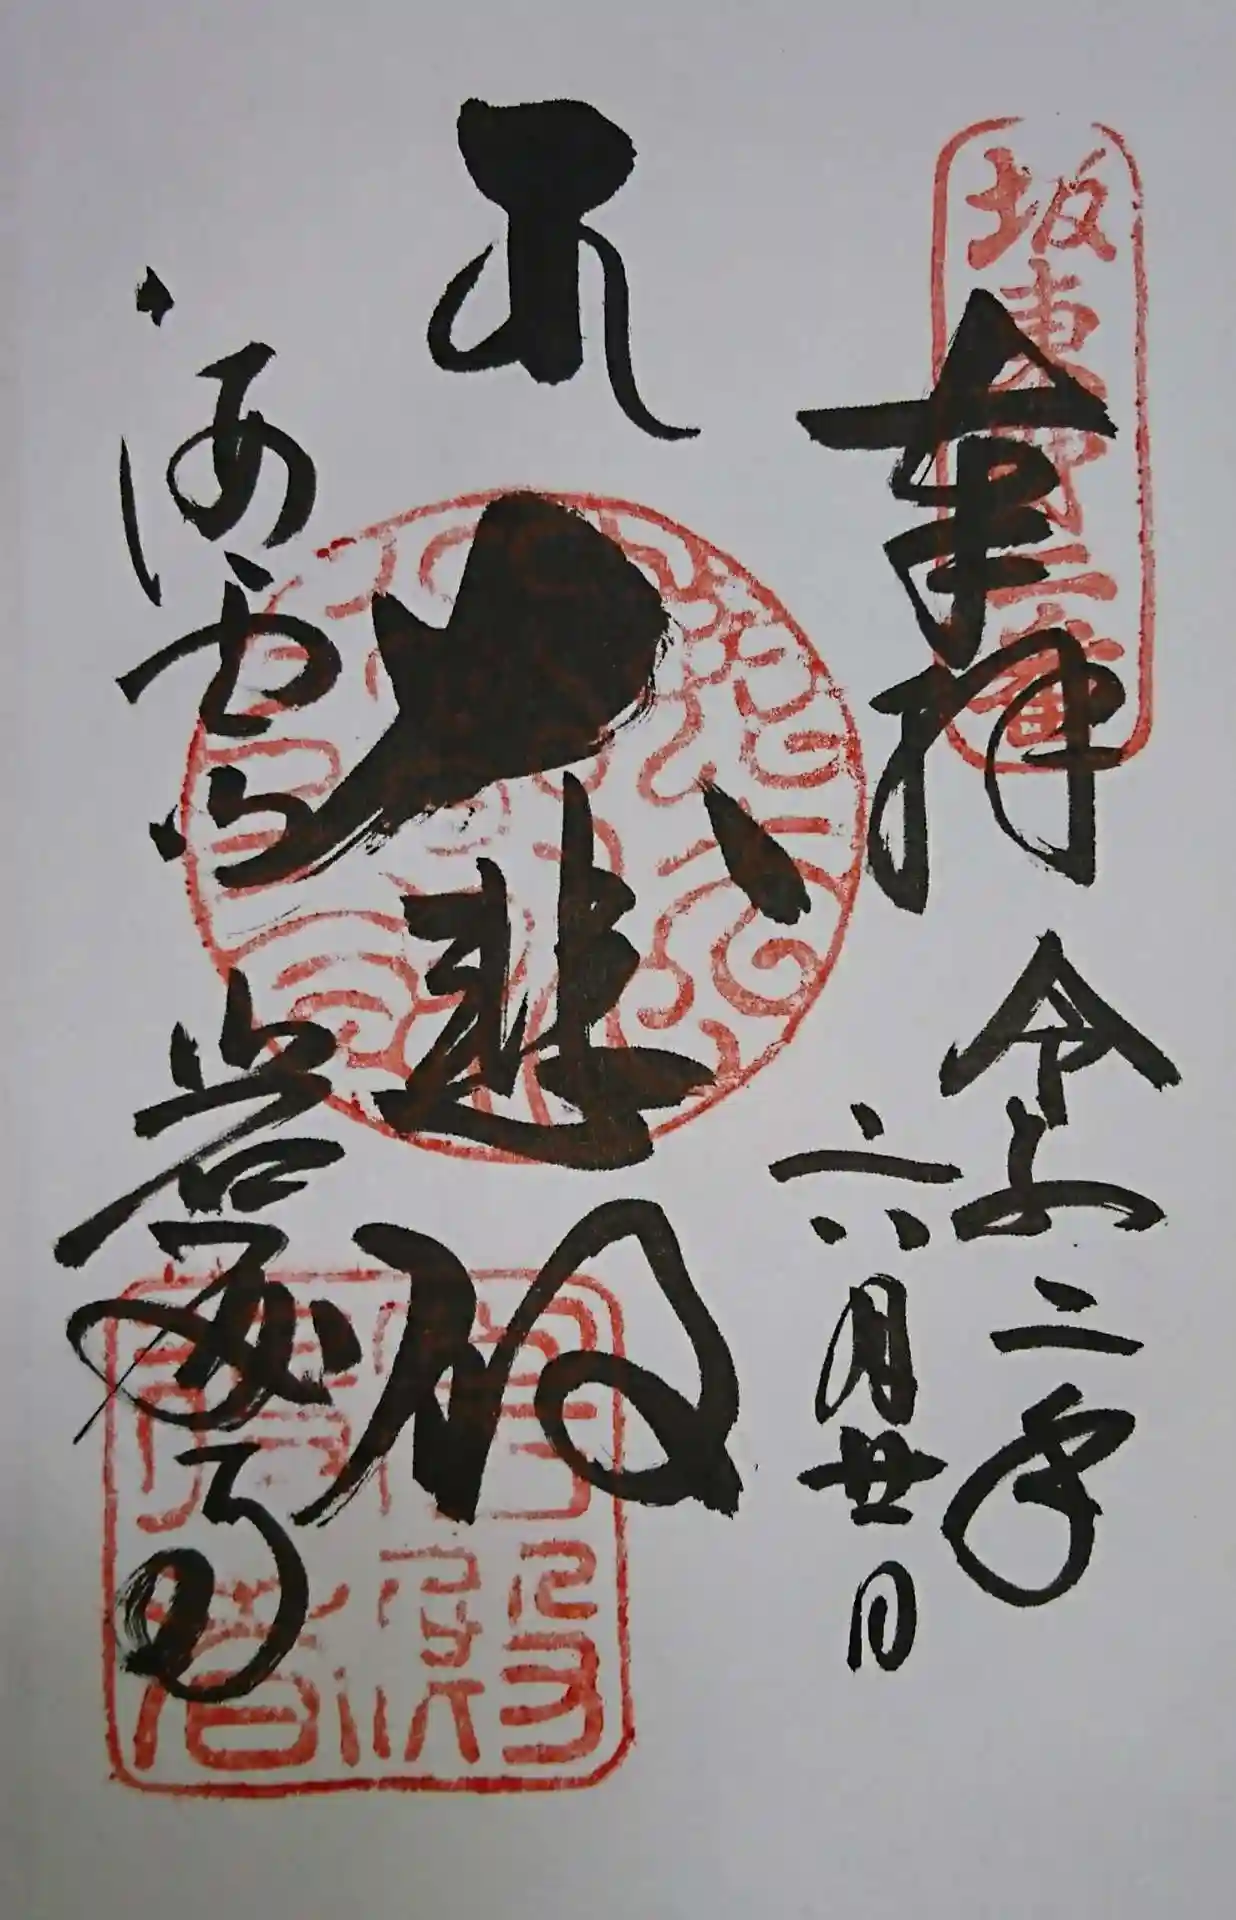 坂東第二番
奉拝 令和二年
六月廿日
大悲殿
海雲山 岩殿寺